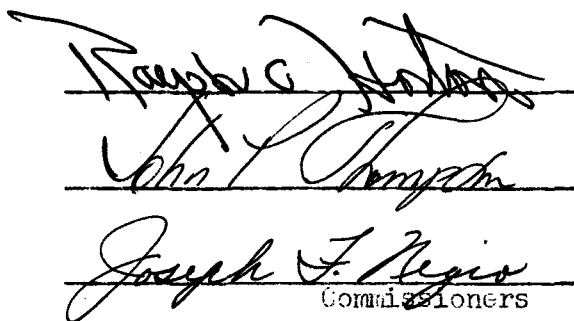 Ralph C
John P Thompson
Joseph F. Negio
Commissioners